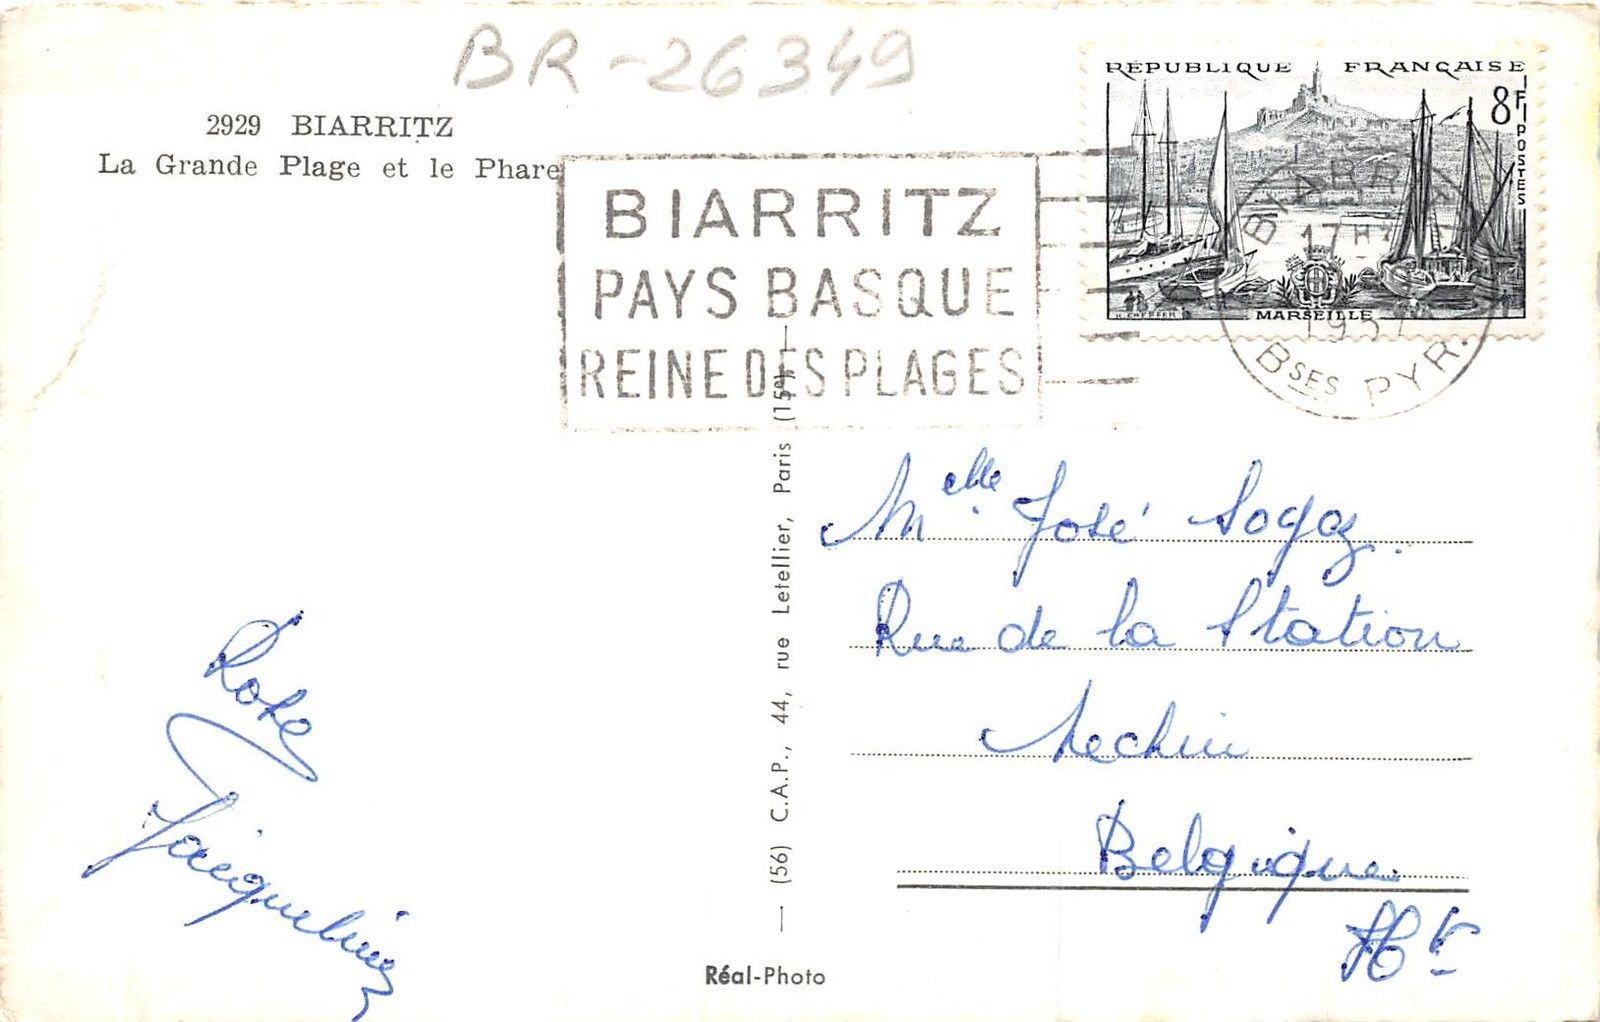 BR-26349
2929 BIARRITZ
La Grande Plage et le Phare
BIARRITZ
PAYS BASQUE
REINE DES PLAGES
RÉPUBLIQUE FRANÇAISE
8F
POSTES
MARSEILLE
BIARRITZ
17H
1957
Bses PYR.
Melle José
Rue de la Station
Néchin
Belgique
Ht
Rose
Jacqueline
— (56) C.A.P., 44, rue Letellier, Paris (15e) —
Réal-Photo